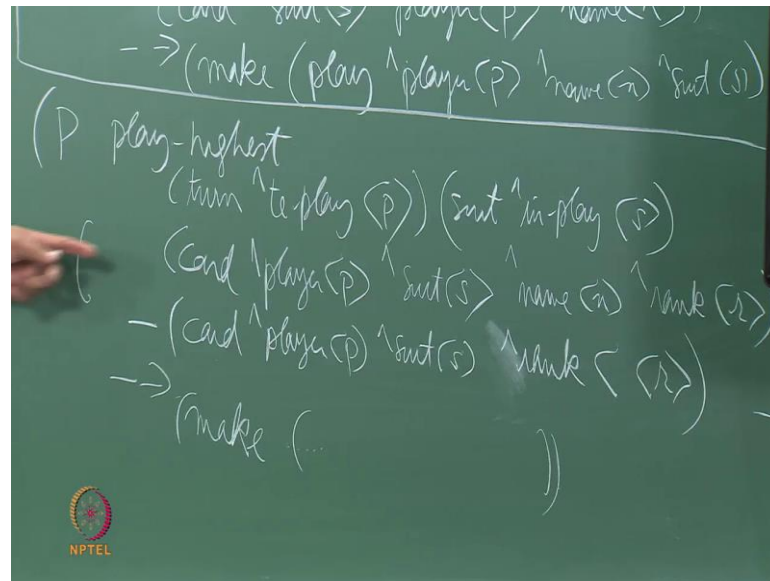 (card ^suit <s> player <p> name <n>)
--> (make (play ^player <p> ^name <n> ^suit <s>)
(P play-highest
(turn ^to-play <p>) (suit ^in-play <s>)
(card ^player <p> ^suit <s> ^name <n> ^rank <r>)
- (card ^player <p> ^suit <s> ^rank < <r>)
-->
(make (... ))
NPTEL